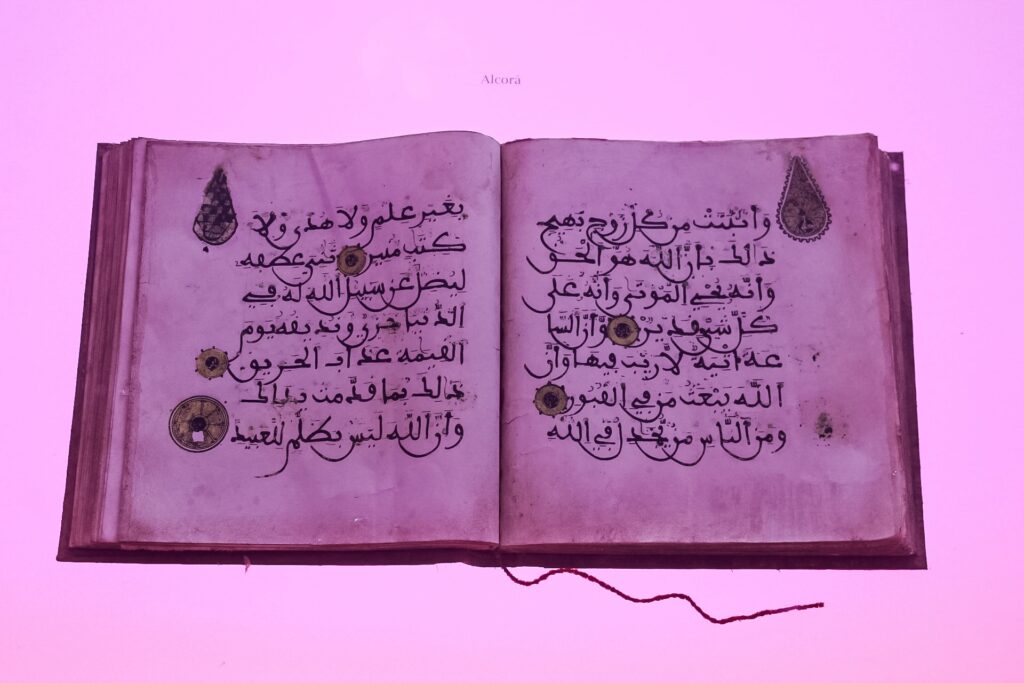 Alcorà
وَأَنۢبَتَتْ مِن كُلِّ زَوْجٍ بَهِيجٍ
ذَٰلِكَ بِأَنَّ ٱللَّهَ هُوَ ٱلْحَقُّ
وَأَنَّهُ يُحْيِ ٱلْمَوْتَىٰ وَأَنَّهُ عَلَىٰ
كُلِّ شَيْءٍ قَدِيرٌ وَأَنَّ ٱلسَّا
عَةَ ءَاتِيَةٌ لَّا رَيْبَ فِيهَا وَأَنَّ
ٱللَّهَ يَبْعَثُ مَن فِي ٱلْقُبُورِ
وَمِنَ ٱلنَّاسِ مَن يُجَٰدِلُ فِي ٱللَّهِ
بِغَيْرِ عِلْمٍ وَلَا هُدًى وَلَا
كِتَٰبٍ مُّنِيرٍ ثَانِيَ عِطْفِهِ
لِيُضِلَّ عَن سَبِيلِ ٱللَّهِ لَهُ فِي
ٱلدُّنْيَا خِزْيٌ وَنُذِيقُهُ يَوْمَ
ٱلْقِيَٰمَةِ عَذَابَ ٱلْحَرِيقِ
ذَٰلِكَ بِمَا قَدَّمَتْ يَدَاكَ
وَأَنَّ ٱللَّهَ لَيْسَ بِظَلَّٰمٍ لِّلْعَبِيدِ